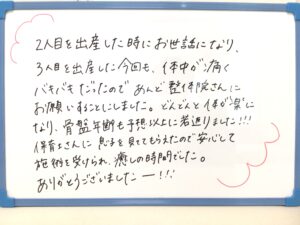 2人目を出産した時にお世話になり、
3人目を出産した今回も、体中が痛く
バキバキだったので あんど整体院さんに
お願いすることにしました。どんどんと体が楽に
なり、骨盤年齢も予想以上に若返りました!!!
保育士さんに息子を見ててもらえたので安心して
施術を受けられ、癒しの時間でした。
ありがとうございましたー!!!